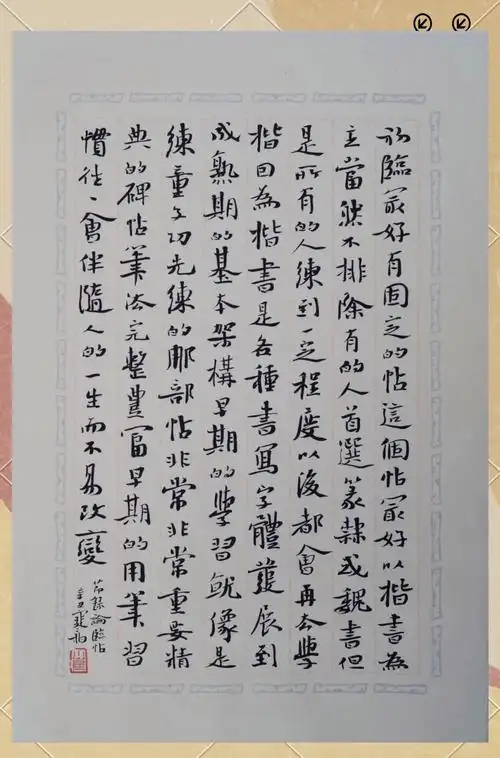 初臨最好有固定的帖這個帖最好以楷書為
主當然不排除有的人首選篆隸或魏書但
是所有的人練到一定程度以後都會再去學
楷因為楷書是各種書寫字體發展到
成熟期的基本架構早期的學習就像是
練童子功先練的那部帖非常非常重要精
典的碑帖筆法完整豐富早期的用筆習
慣往、會伴隨人的一生而不易改變
節錄論臨帖
辛丑